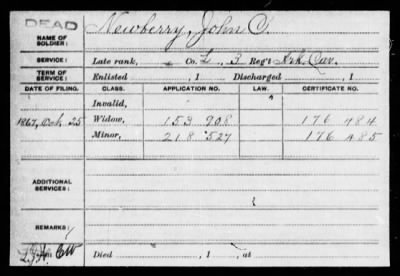 DEAD
NAME OF SOLDIER: Newberry, John C.
SERVICE: Late rank, Co. L, 3 Reg't Ark Cav.
TERM OF SERVICE: Enlisted , 1 Discharged , 1
DATE OF FILING. CLASS. APPLICATION NO. LAW. CERTIFICATE NO.
Invalid,
1867, Oct. 25 Widow, 153 908 176 484
Minor, 218 527 176 485
ADDITIONAL SERVICES:
REMARKS:
Died , 1 , at